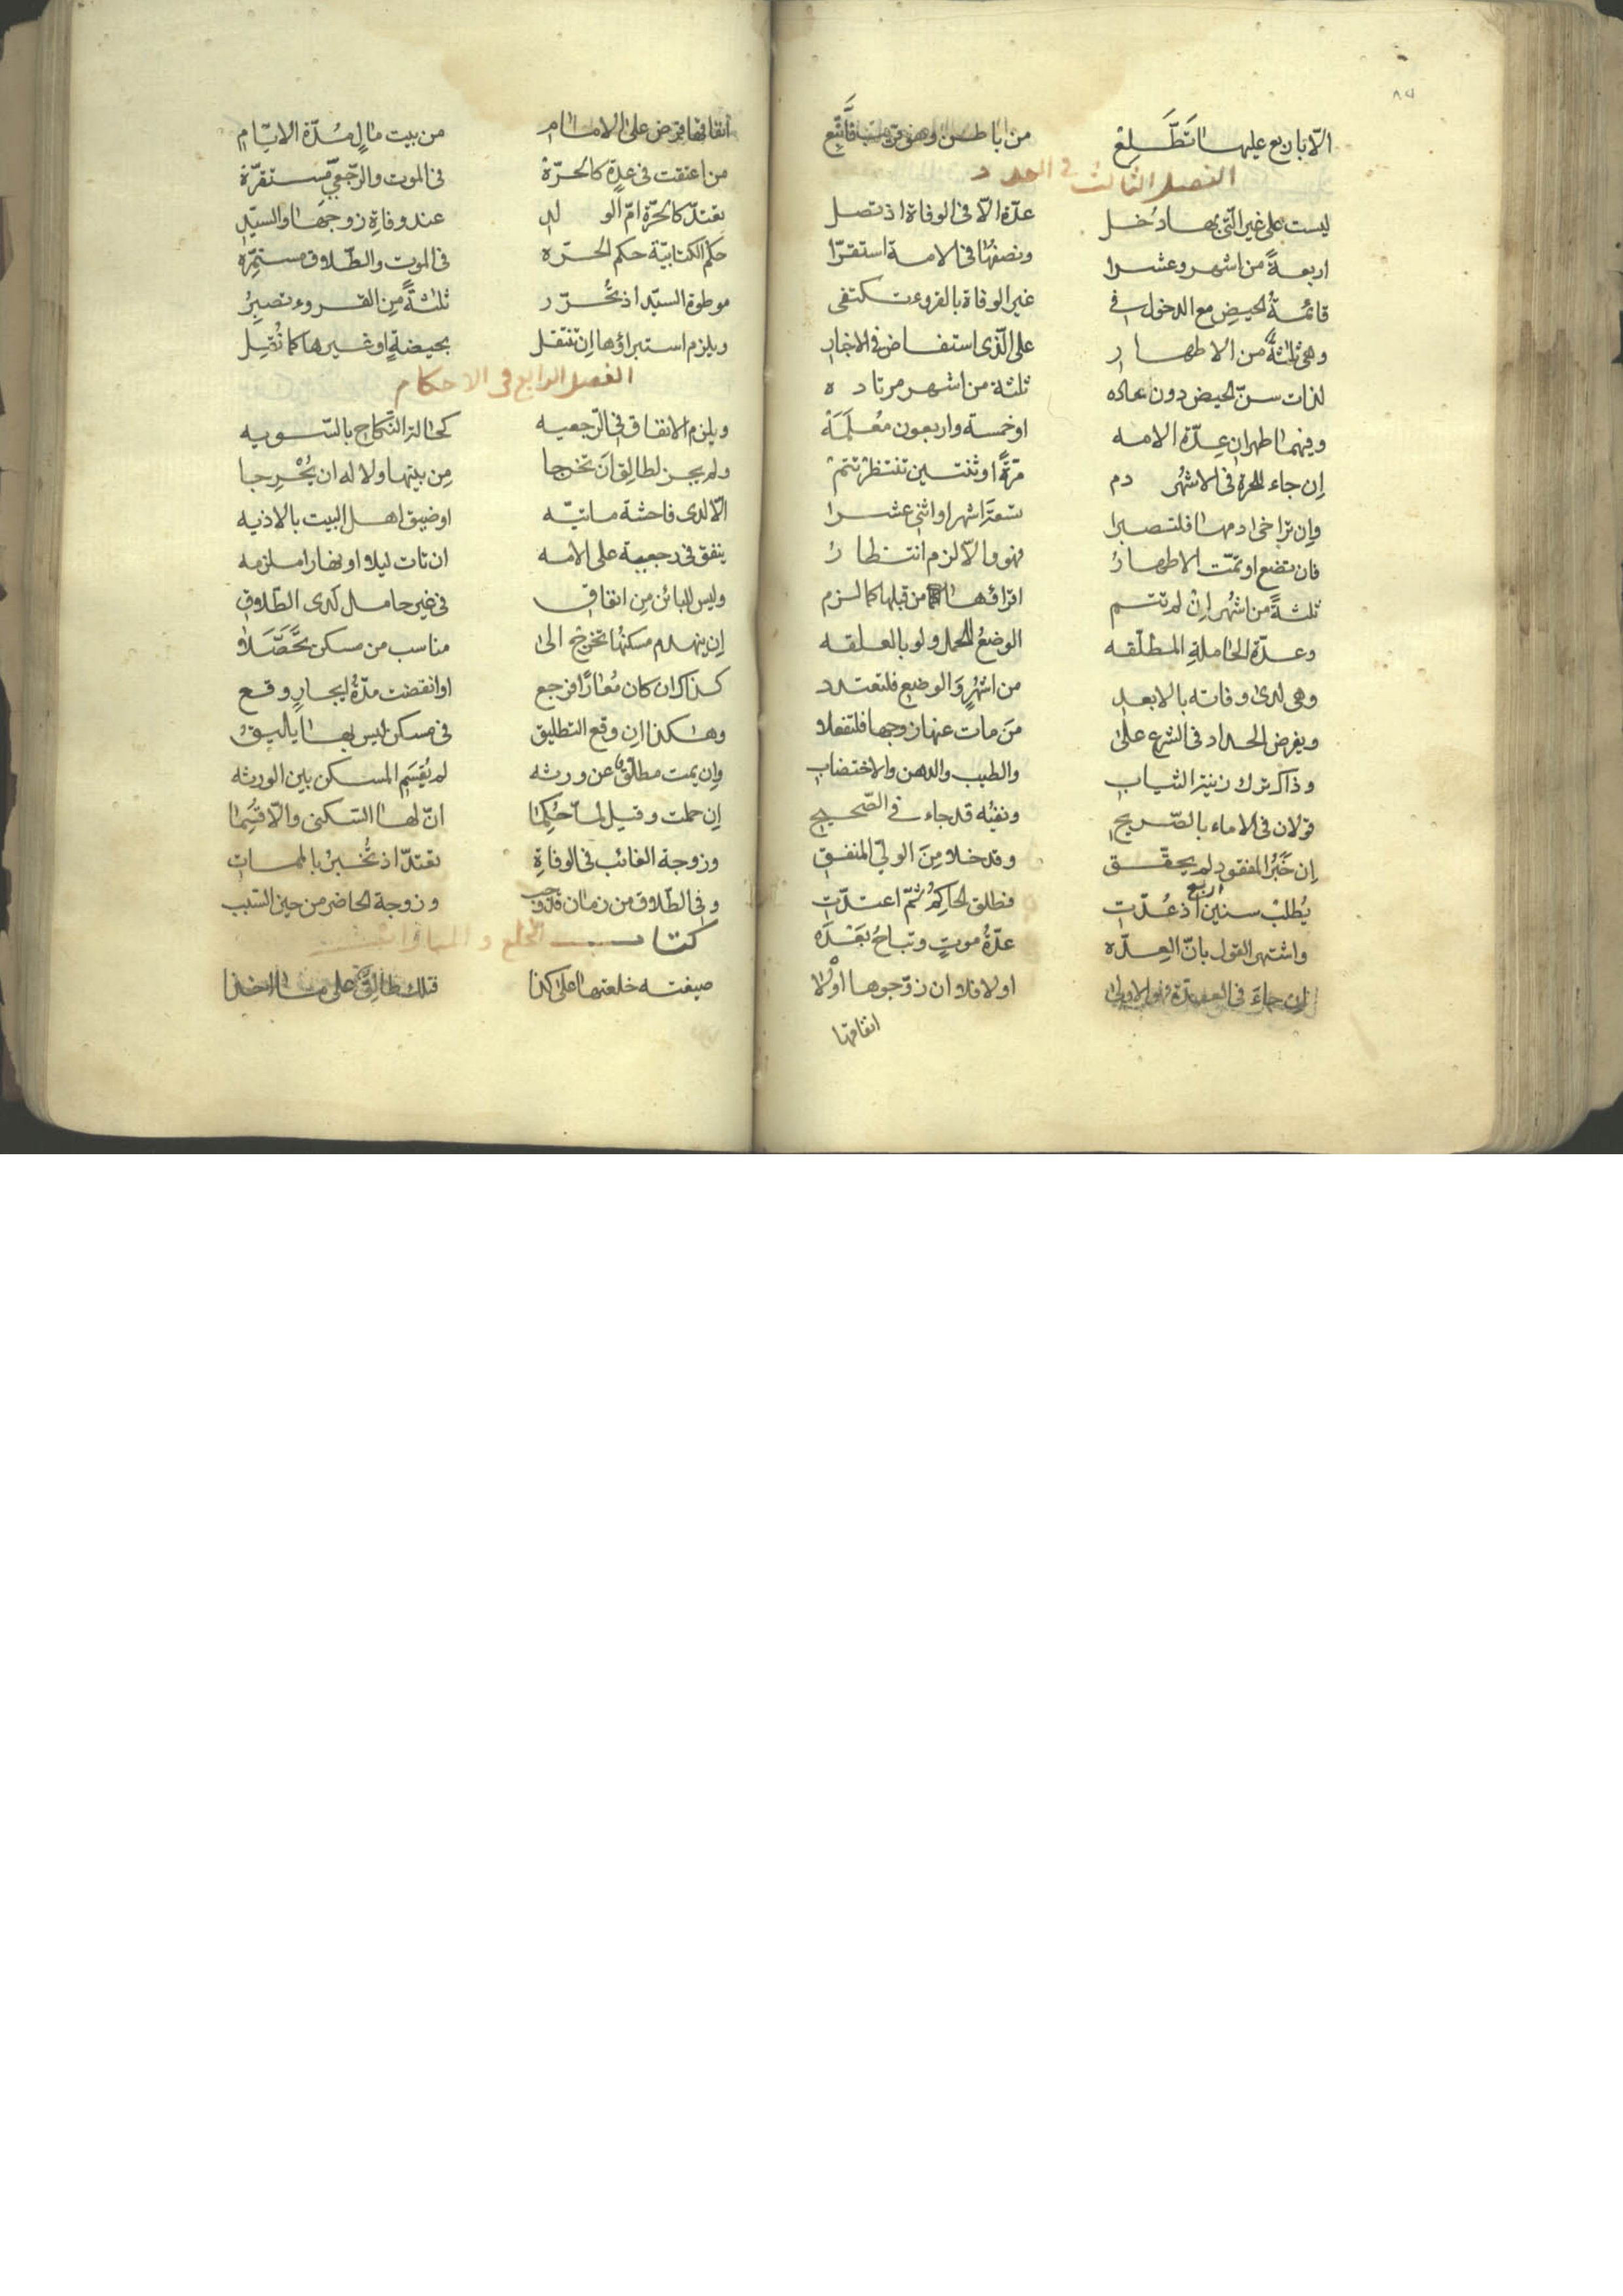 الّا باربع عليها تطّلع من باطن وهو قريب
الفصل الثالث في العدد
ليست على غير الّتي بها دُخل عدّة الّا في الوفاة اذ تصل
اربعةً من اشهر وعشرا ونصفها في الامة استقرّا
قائمةُ الحيضِ مع الدخول في غير الوفاة بالقروء تكتفى
وهي ثلثةٌ من الاطهار على الّذى استفاض في الاخبار
لذات سنّ الحيض دون عاده ثلثة من اشهر مرتاده
وفيهما طهران عِدّة الامه او خمسة واربعون مُعْلَمَة
إن جاء للحرة في الاشهُر دم مرّةً او ثنتين تنتظر تتم
وإن تراخى ادمها فلتصبرا تسعة اشهر او اثنى عشرا
فان تضع او تمّت الاطهارُ فهو والّا لزم انتظارُ
ثلثةً من اشهُر إنْ لم تتم اقرائها من قبلها كما لزم
وعدّة الحاملةِ المطلّقه الوضعُ للحمل ولو بالعلقه
وهي لدى وفاته بالابعد من اشهُرٍ وَالوضع فلتعتدد
ويفرض الحداد في الشرع على مَن مات عنها زوجها فلتفعلا
وذاك ترك زينة الثياب والطيب والدهن والاختضاب
قولان في الاماء بالصّريح ونفيُه قد جاء في الصّحيح
إن خَبَرُ المفقود لم يحقّق وقد خلا مِنَ الوليّ المنفق
يُطلبْ سنين اربع اذ عُدّت فطلق الحاكِمُ ثمّ اعتدّت
واشتهر القول بانّ العِدّه عدّةُ موتٍ وتباحُ بَعْدَه
إن جاءَ في العدّة فهو الاولى اولا فلا ان زوّجوها اوْلا
انفاقها
انفاقها فرض على الامام من بيت مالٍ مُدّة الايّام
من اعتقت في عدةٍ كالحرّة في الموت والرّجعيّ مستقرّة
تعتدّ كالحرّة امّ الولد عند وفاةِ زوجها والسيّدِ
حكم الكتابيّة حكم الحرّه في الموت والطّلاق مستمرّه
موطوة السيّد اذ تُحرّر ثلثةً مِن القروء تصبِرُ
ويلزم استبراؤها إن تنتقل بحيضةٍ او غيرها كما نُقِل
الفصل الرابع في الاحكام
ويلزم الانفاق في الرّجعيه كحالة النّكاح بالسّويه
ولم يجز لطالِقٍ أن تخرجا مِن بيتها ولا له ان يُخْرِجا
الّا لدى فاحشة ماتيّه او ضيق اهل البيت بالاذيه
ينفق في رجعية على الامه ان تات ليلا او نهارا ملزمه
وليس للبائن مِن انفاق في غير حامل لدى الطّلاق
إن ينهدم مسكنُها تخرج الى مناسب من مسكن تَحَصَّلا
كذاك ان كان مُعارًا فرجع او انقضت مدّةُ ايجارٍ وقع
وهكذا ان وقع التطليق في مسكن ليس بها يليقُ
وإن يمت مطلّق عن ورثه لم يُقسَمِ المسكن بين الورثه
إن حملت وقيل لمّا حُكِما انّ لها السّكنى والّا قُسِما
وزوجة الغائب في الوفاةِ تعتدّ اذ تُخْبرُ بالممات
وفي الطّلاق من زمان وزوجة الحاضر من حين السّبب
كتاب الخلع والمباراة
صيغته خلعتها على كذا فتلك طالِقٌ على ما اخذا